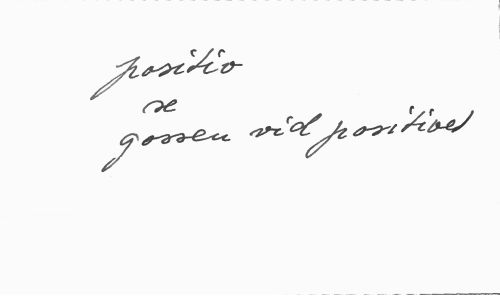 positiv
se
gossen vid positivet